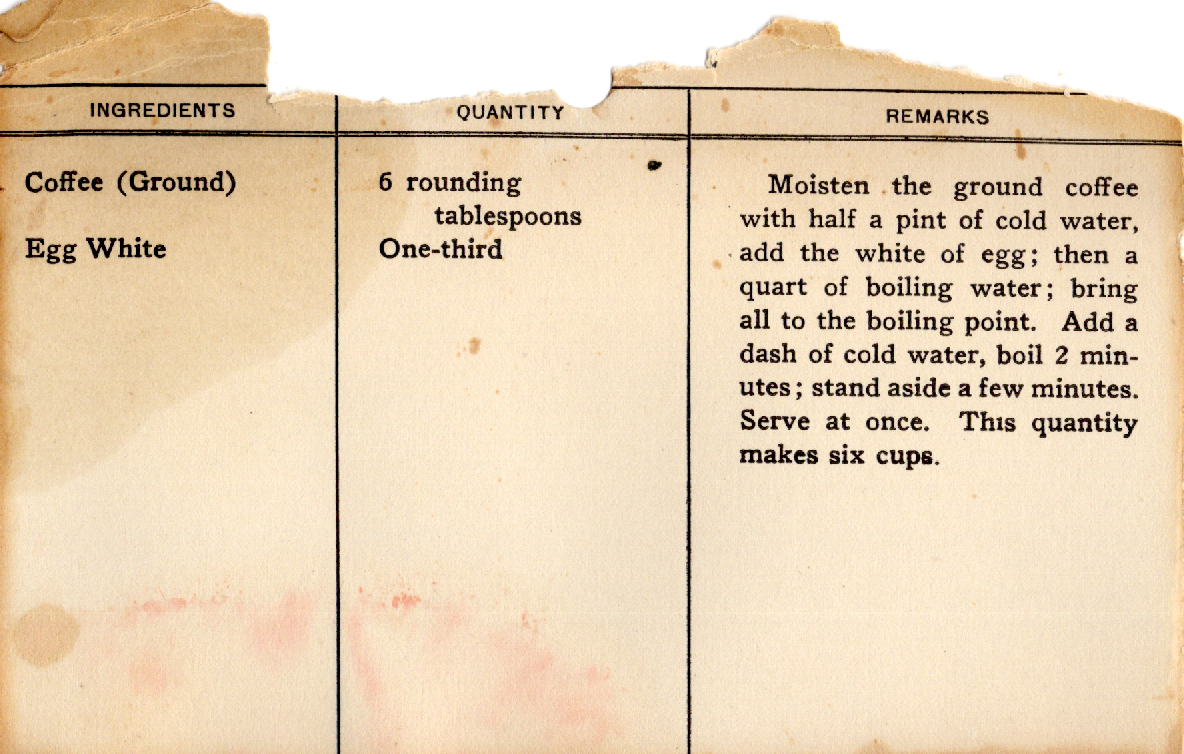 INGREDIENTS QUANTITY REMARKS
Coffee (Ground) 6 rounding
tablespoons
Egg White One-third
Moisten the ground coffee
with half a pint of cold water,
add the white of egg; then a
quart of boiling water; bring
all to the boiling point. Add a
dash of cold water, boil 2 min-
utes; stand aside a few minutes.
Serve at once. This quantity
makes six cups.